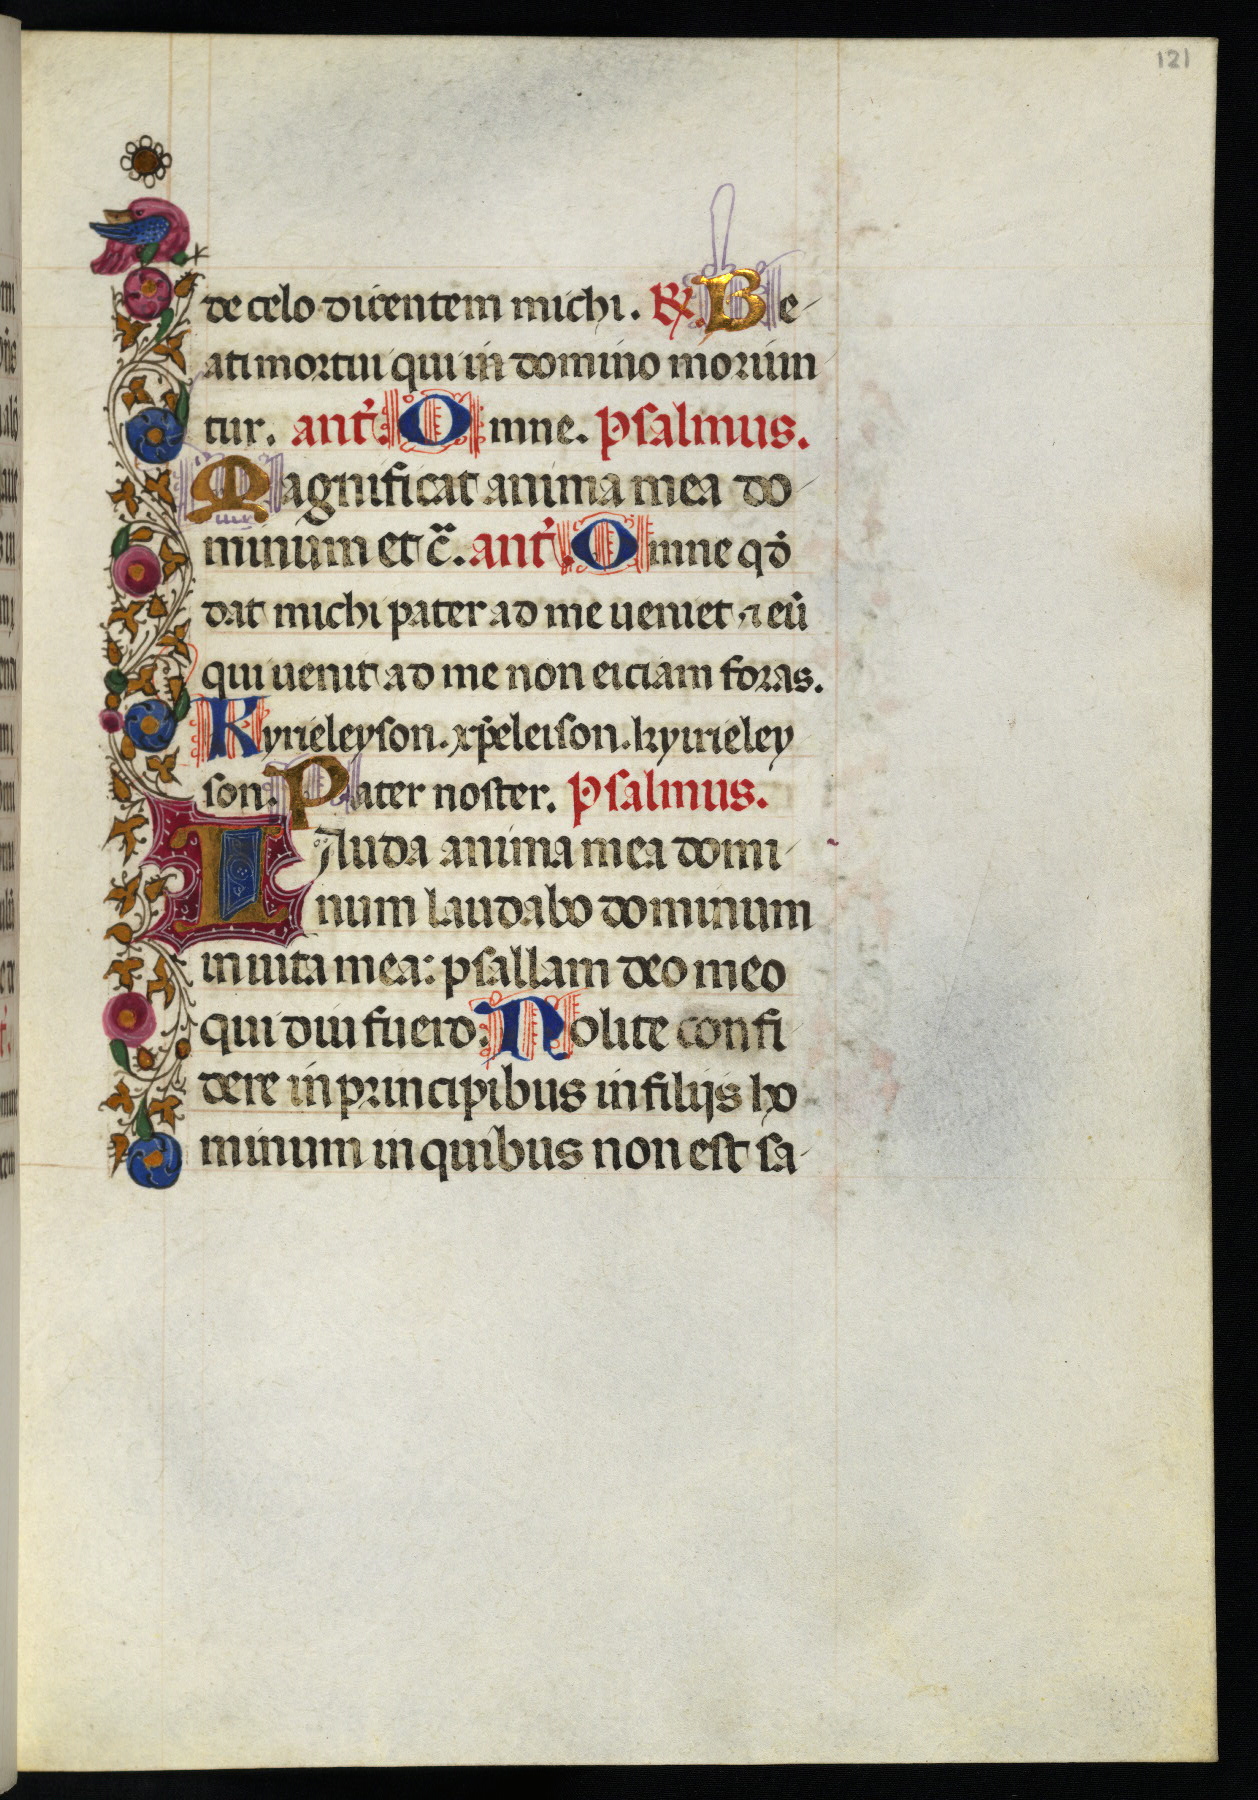 121
de celo dicentem michi. ℟. Be-
ati mortui qui in domino moriun
tur. ant̃. Omne. psalmus.
Magnificat anima mea do-
minum et c̃. ant̃. Omne qđ
dat michi pater ad me ueniet ⁊ eũ
qui uenit ad me non eiciam foras.
Kyrieleyson. xp̄eleison. kyrieley
son. Pater noster. psalmus.
LAuda anima mea domi-
num laudabo dominum
in uita mea: psallam deo meo
qui diu fuero. Nolite confi
dere in principibus in filijs ho
minum in quibus non est sa-